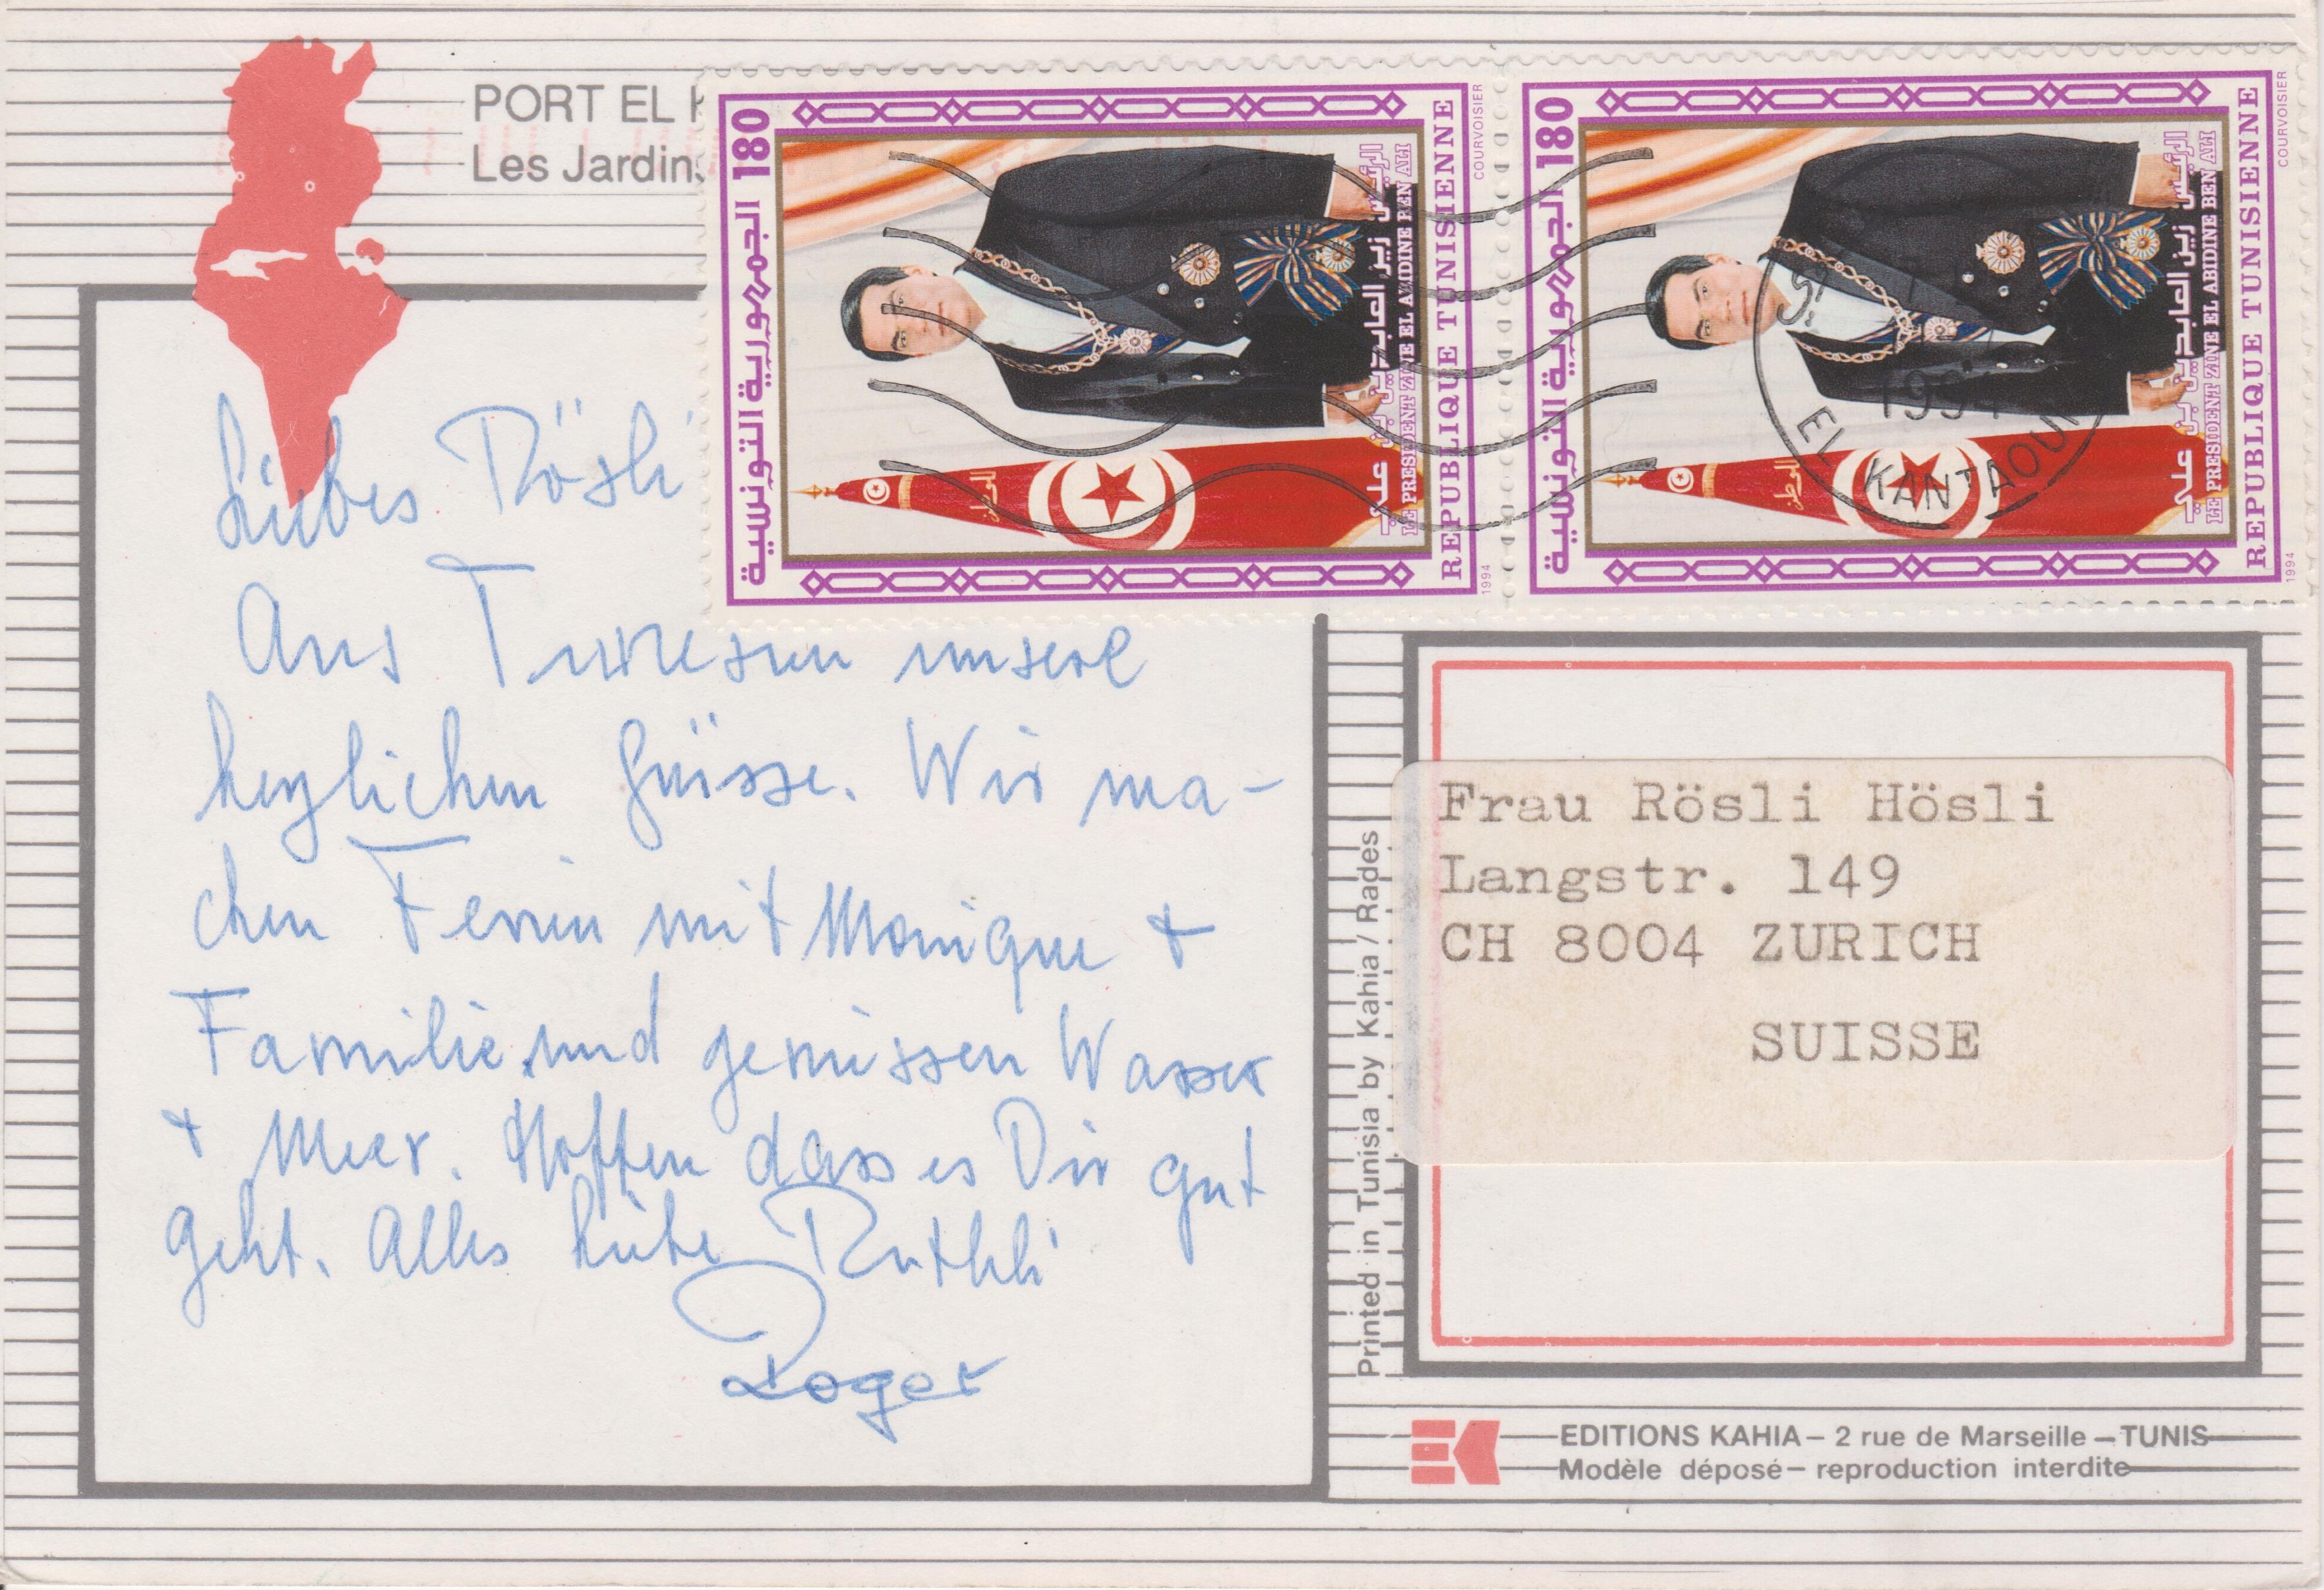 PORT EL
Les Jardins
180
الجمهورية التونسية
الرئيس زين العابدين بن علي
LE PRESIDENT ZINE EL ABIDINE BEN ALI
REPUBLIQUE TUNISIENNE
COURVOISIER
1994
180
الجمهورية التونسية
الرئيس زين العابدين بن علي
LE PRESIDENT ZINE EL ABIDINE BEN ALI
REPUBLIQUE TUNISIENNE
COURVOISIER
1994
EL KANTAOUI
Liebes Rösli
Aus Tunesien unsere
herzlichen Grüsse. Wir ma-
chen Ferien mit Monique +
Familie und geniessen Wasser
+ Meer. Hoffen dass es Dir gut
geht. Alles Liebe Ruthli
Roger
Printed in Tunisia by Kahia / Rades
Frau Rösli Hösli
Langstr. 149
CH 8004 ZURICH
SUISSE
EDITIONS KAHIA – 2 rue de Marseille – TUNIS
Modèle déposé – reproduction interdite